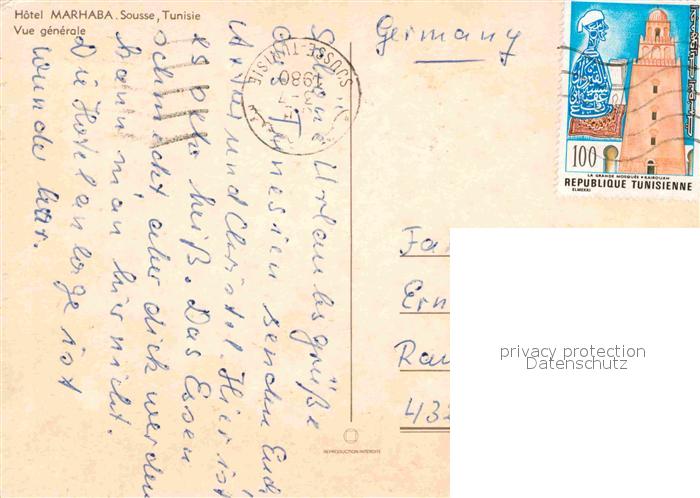 Hôtel MARHABA. Sousse, Tunisie
Vue générale
Schöne Urlaubsgrüße
aus Tunesien senden Euch
und Christel. Hier ist
es sehr heiß. Das Essen
schmeckt aber dick werden
kann man hier nicht.
Die Hotelanlage ist
wunderbar.
SOUSSE-TUNISIE
1980
Germany
100
LA GRANDE MOSQUÉE • KAIROUAN
REPUBLIQUE TUNISIENNE
ELMEKKI
Fa
Ern
Ra
432
privacy protection
Datenschutz
REPRODUCTION INTERDITE